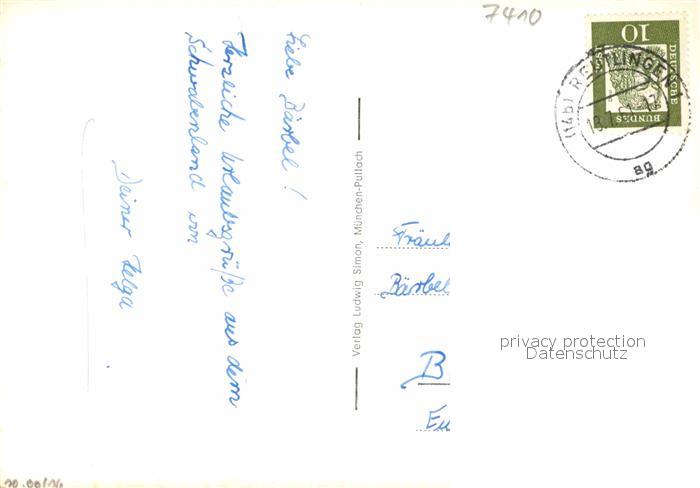 7410
Liebe Bärbel!
Herzliche Urlaubsgrüße aus dem
Schwabenland von
Deiner Helga
Verlag Ludwig Simon, München-Pullach
Fräul
Bärbel
B
Eu
10
DEUTSCHE
BUNDES
(14b) REUTLINGEN 1
ag
privacy protection
Datenschutz